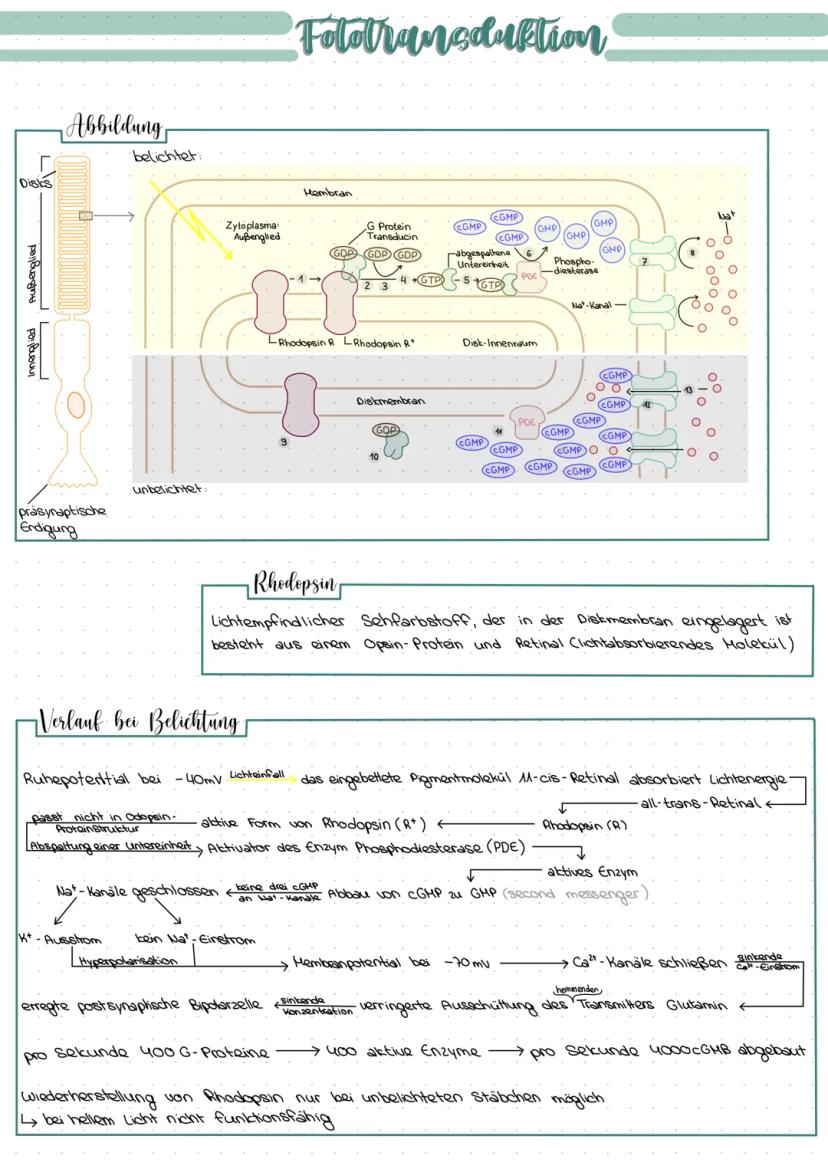 Fototransduktion
Abbildung
belichtet:
Disks
Außenglied
Innenglied
präsynaptische
Endigung
Membran
Zytoplasma:
Außenglied
G Protein
Transducin
GDP GDP GDP
1 2 3 4 GTP 5 GTP
abgespaltene
Untereinheit
6
PDE
Phospho-
diesterase
cGMP cGMP cGMP
GMP GMP GMP GMP
7 8
Na⁺
Na⁺-Kanal
Rhodopsin R
Rhodopsin R*
Disk-Innenraum
Diskmembran
9
GDP
10
11
PDE
cGMP cGMP cGMP cGMP cGMP cGMP cGMP cGMP cGMP cGMP cGMP
12
13
unbelichtet:
Rhodopsin
Lichtempfindlicher Sehfarbstoff, der in der Diskmembran eingelagert ist
besteht aus einem Opsin-Protein und Retinal (lichtabsorbierendes Molekül)
Verlauf bei Belichtung
Ruhepotential bei -40mV Lichteinfall das eingebettete Pigmentmolekül 11-cis-Retinal absorbiert Lichtenergie
all-trans-Retinal
passt nicht in Odopsin-
Proteinstruktur
aktive Form von Rhodopsin (R*) Rhodopsin (R)
Abspaltung einer Untereinheit Aktivator des Enzym Phosphodiesterase (PDE)
aktives Enzym
Na⁺-Kanäle geschlossen keine drei cGMP an Na⁺-Kanäle Abbau von cGMP zu GMP (second messenger)
K⁺-Ausstrom kein Na⁺-Einstrom
Hyperpolarisation Membranpotential bei -70mV Ca²⁺-Kanäle schließen sinkende Ca²⁺-Einstrom
erregte postsynaptische Bipolarzelle sinkende Konzentration verringerte Ausschüttung des hemmenden Transmitters Glutamin
pro Sekunde 400 G-Proteine → 400 aktive Enzyme → pro Sekunde 4000cGMB abgebaut
Wiederherstellung von Rhodopsin nur bei unbelichteten Stäbchen möglich
↳ bei hellem Licht nicht funktionsfähig